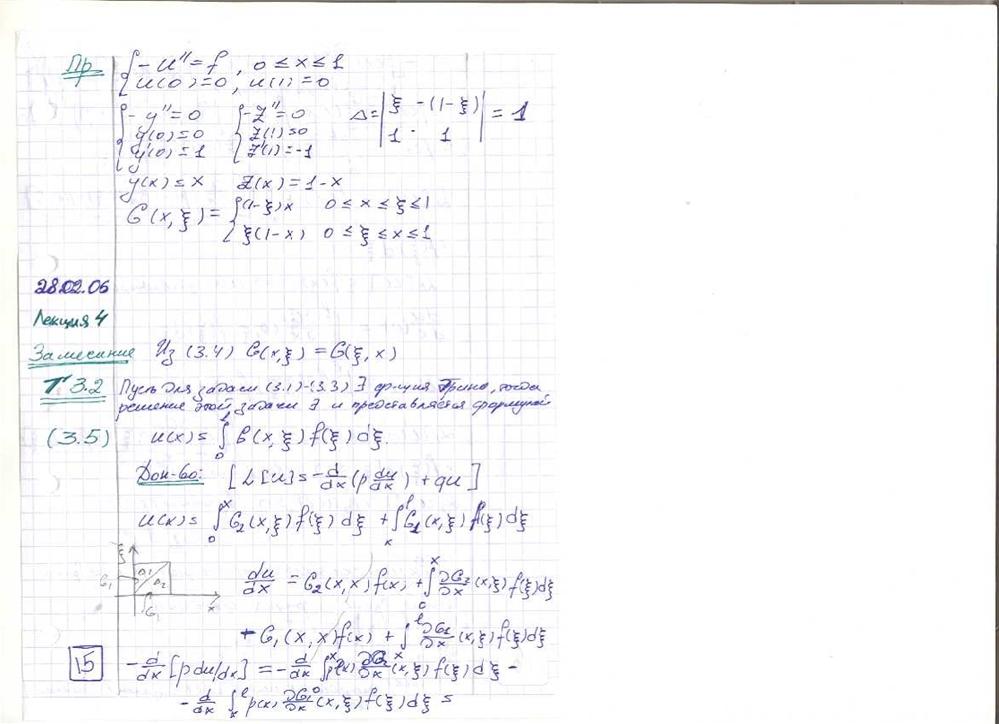 Пр { -u'' = f, 0 ≤ x ≤ 1
u(0) = 0, u(1) = 0
{ -y'' = 0 { -z'' = 0 Δ = | ξ -(1-ξ) | = 1
y(0) = 0 z(1) = 0 | 1 1 |
y'(0) = 1 z'(1) = -1
y(x) = x z(x) = 1-x
G(x, ξ) = { (1-ξ)x 0 ≤ x ≤ ξ ≤ 1
ξ(1-x) 0 ≤ ξ ≤ x ≤ 1
28.02.06
Лекция 4
Замечание Из (3.4) G(x,ξ) = G(ξ,x)
Т 3.2 Пусть для задачи (3.1)-(3.3) ∃ ф-ция Грина, тогда
решение этой задачи ∃ и представляется формулой
(3.5) u(x) = ∫₀ˡ G(x, ξ) f(ξ) dξ.
Док-во: [L[u] = -d/dx (p du/dx) + qu]
u(x) = ∫₀ˣ G₂(x, ξ) f(ξ) dξ + ∫ₓˡ G₁(x, ξ) f(ξ) dξ
ξ
G₁
x
G₁
du/dx = G₂(x, x) f(x) + ∫₀ˣ ∂G₂/∂x (x,ξ) f(ξ) dξ
- G₁(x, x) f(x) + ∫ₓˡ ∂G₁/∂x (x, ξ) f(ξ) dξ
15 -d/dx [p du/dx] = -d/dx ∫₀ˣ p(x) ∂G₂/∂x (x, ξ) f(ξ) dξ -
-d/dx ∫ₓˡ p(x) ∂G₁/∂x (x, ξ) f(ξ) dξ =